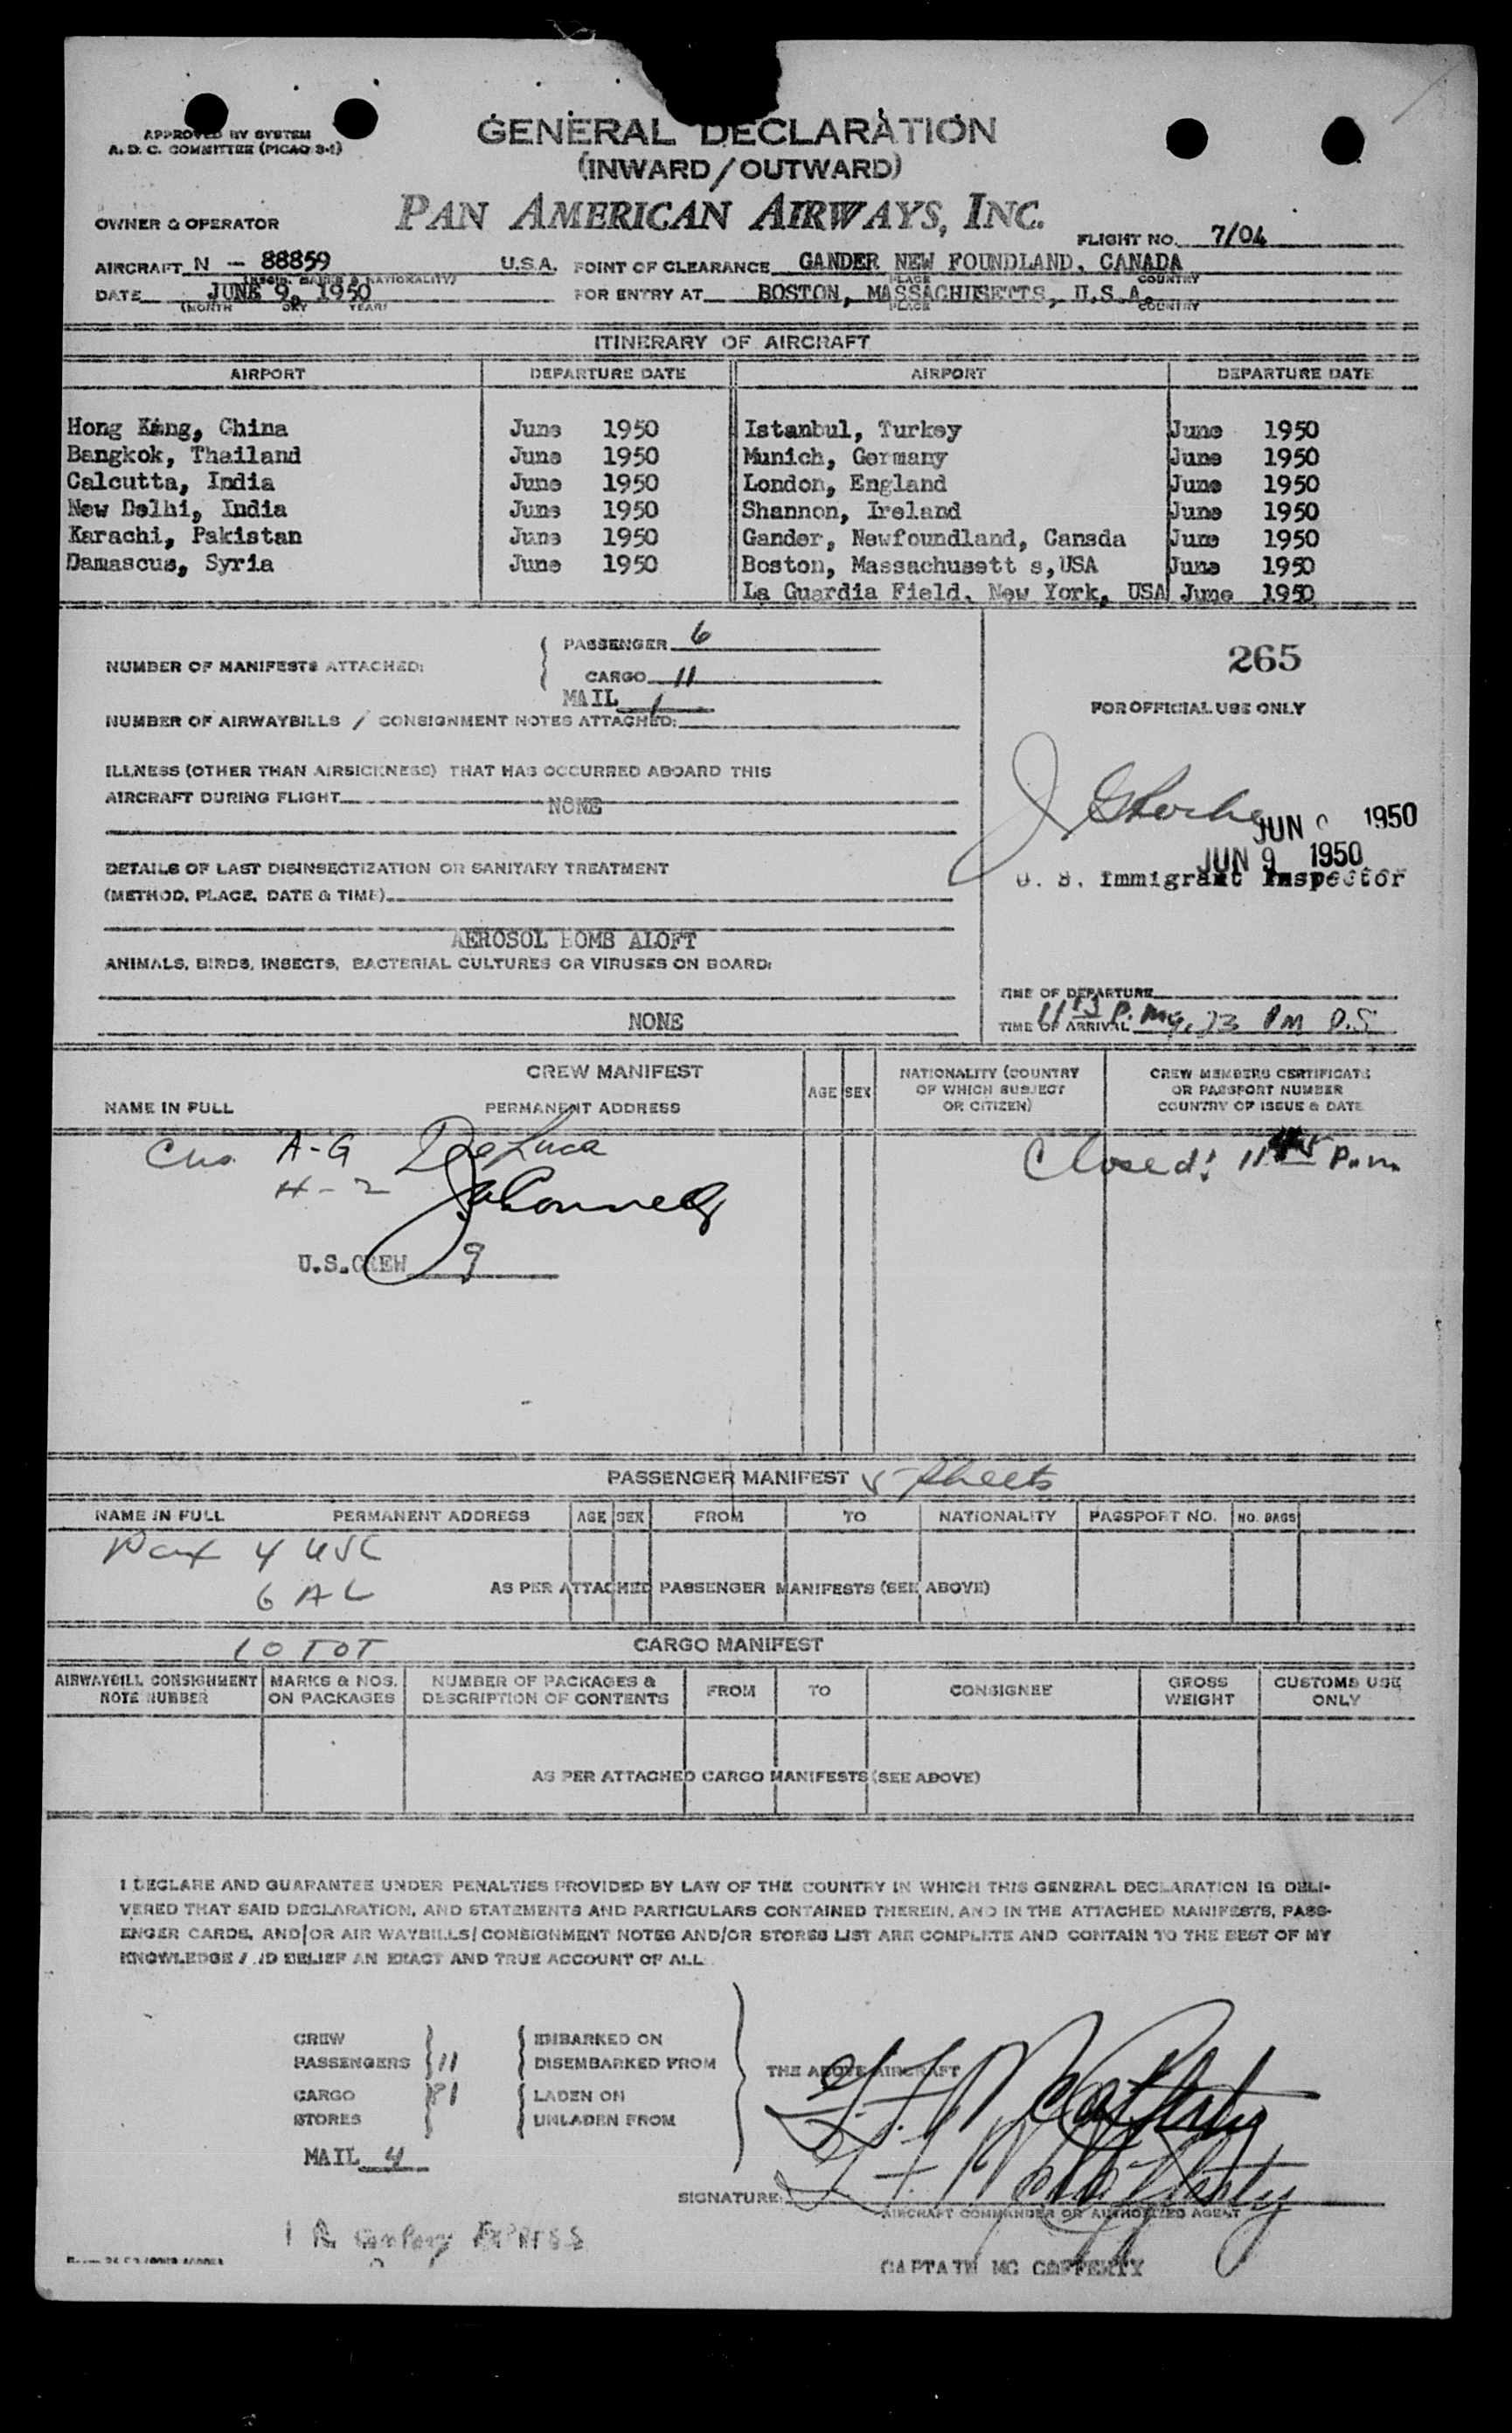 APPROVED BY SYSTEM
A. D. C. COMMITTEE (PICAO 3-1)
GENERAL DECLARATION
(INWARD/OUTWARD)
OWNER & OPERATOR
PAN AMERICAN AIRWAYS, INC.
FLIGHT NO. 7/04
AIRCRAFT N - 88859 U.S.A. POINT OF CLEARANCE GANDER NEW FOUNDLAND, CANADA
(REGIS. MARKS & NATIONALITY) PLACE COUNTRY
DATE JUNE 9, 1950 FOR ENTRY AT BOSTON, MASSACHUSETTS, U.S.A.
(MONTH DAY YEAR) PLACE COUNTRY
ITINERARY OF AIRCRAFT
AIRPORT DEPARTURE DATE AIRPORT DEPARTURE DATE
Hong Kong, China June 1950 Istanbul, Turkey June 1950
Bangkok, Thailand June 1950 Munich, Germany June 1950
Calcutta, India June 1950 London, England June 1950
New Delhi, India June 1950 Shannon, Ireland June 1950
Karachi, Pakistan June 1950 Gander, Newfoundland, Canada June 1950
Damascus, Syria June 1950 Boston, Massachusett s,USA June 1950
La Guardia Field, New York, USA June 1950
NUMBER OF MANIFESTS ATTACHED:
PASSENGER 6
CARGO 11
MAIL 1
265
FOR OFFICIAL USE ONLY
NUMBER OF AIRWAYBILLS / CONSIGNMENT NOTES ATTACHED:
ILLNESS (OTHER THAN AIRSICKNESS) THAT HAS OCCURRED ABOARD THIS
AIRCRAFT DURING FLIGHT NONE
JUN 9 1950
JUN 9 1950
U. S. Immigrant Inspector
DETAILS OF LAST DISINSECTIZATION OR SANITARY TREATMENT
(METHOD, PLACE, DATE & TIME)
AEROSOL BOMB ALOFT
ANIMALS, BIRDS, INSECTS, BACTERIAL CULTURES OR VIRUSES ON BOARD:
NONE
TIME OF DEPARTURE
TIME OF ARRIVAL
CREW MANIFEST
NAME IN FULL PERMANENT ADDRESS AGE SEX NATIONALITY (COUNTRY OF WHICH SUBJECT OR CITIZEN) CREW MEMBERS CERTIFICATE OR PASSPORT NUMBER COUNTRY OF ISSUE & DATE
A-G DeLuca
H-2
Closed: P.m.
U.S.CREW 9
PASSENGER MANIFEST 5 sheets
NAME IN FULL PERMANENT ADDRESS AGE SEX FROM TO NATIONALITY PASSPORT NO. NO. BAGS
Pax 4 USC
6 AL
AS PER ATTACHED PASSENGER MANIFESTS (SEE ABOVE)
10 TOT
CARGO MANIFEST
AIRWAYBILL CONSIGNMENT NOTE NUMBER MARKS & NOS. ON PACKAGES NUMBER OF PACKAGES & DESCRIPTION OF CONTENTS FROM TO CONSIGNEE GROSS WEIGHT CUSTOMS USE ONLY
AS PER ATTACHED CARGO MANIFESTS (SEE ABOVE)
I DECLARE AND GUARANTEE UNDER PENALTIES PROVIDED BY LAW OF THE COUNTRY IN WHICH THIS GENERAL DECLARATION IS DELI-
VERED THAT SAID DECLARATION, AND STATEMENTS AND PARTICULARS CONTAINED THEREIN, AND IN THE ATTACHED MANIFESTS, PASS-
ENGER CARDS, AND/OR AIR WAYBILLS/CONSIGNMENT NOTES AND/OR STORES LIST ARE COMPLETE AND CONTAIN TO THE BEST OF MY
KNOWLEDGE AND BELIEF AN EXACT AND TRUE ACCOUNT OF ALL
CREW EMBARKED ON
PASSENGERS 11 DISEMBARKED FROM
THE ABOVE AIRCRAFT
CARGO 81 LADEN ON
STORES UNLADEN FROM
MAIL 4
SIGNATURE:
AIRCRAFT COMMANDER OR AUTHORIZED AGENT
EXPRESS
CAPTAIN MC CAFFERTY